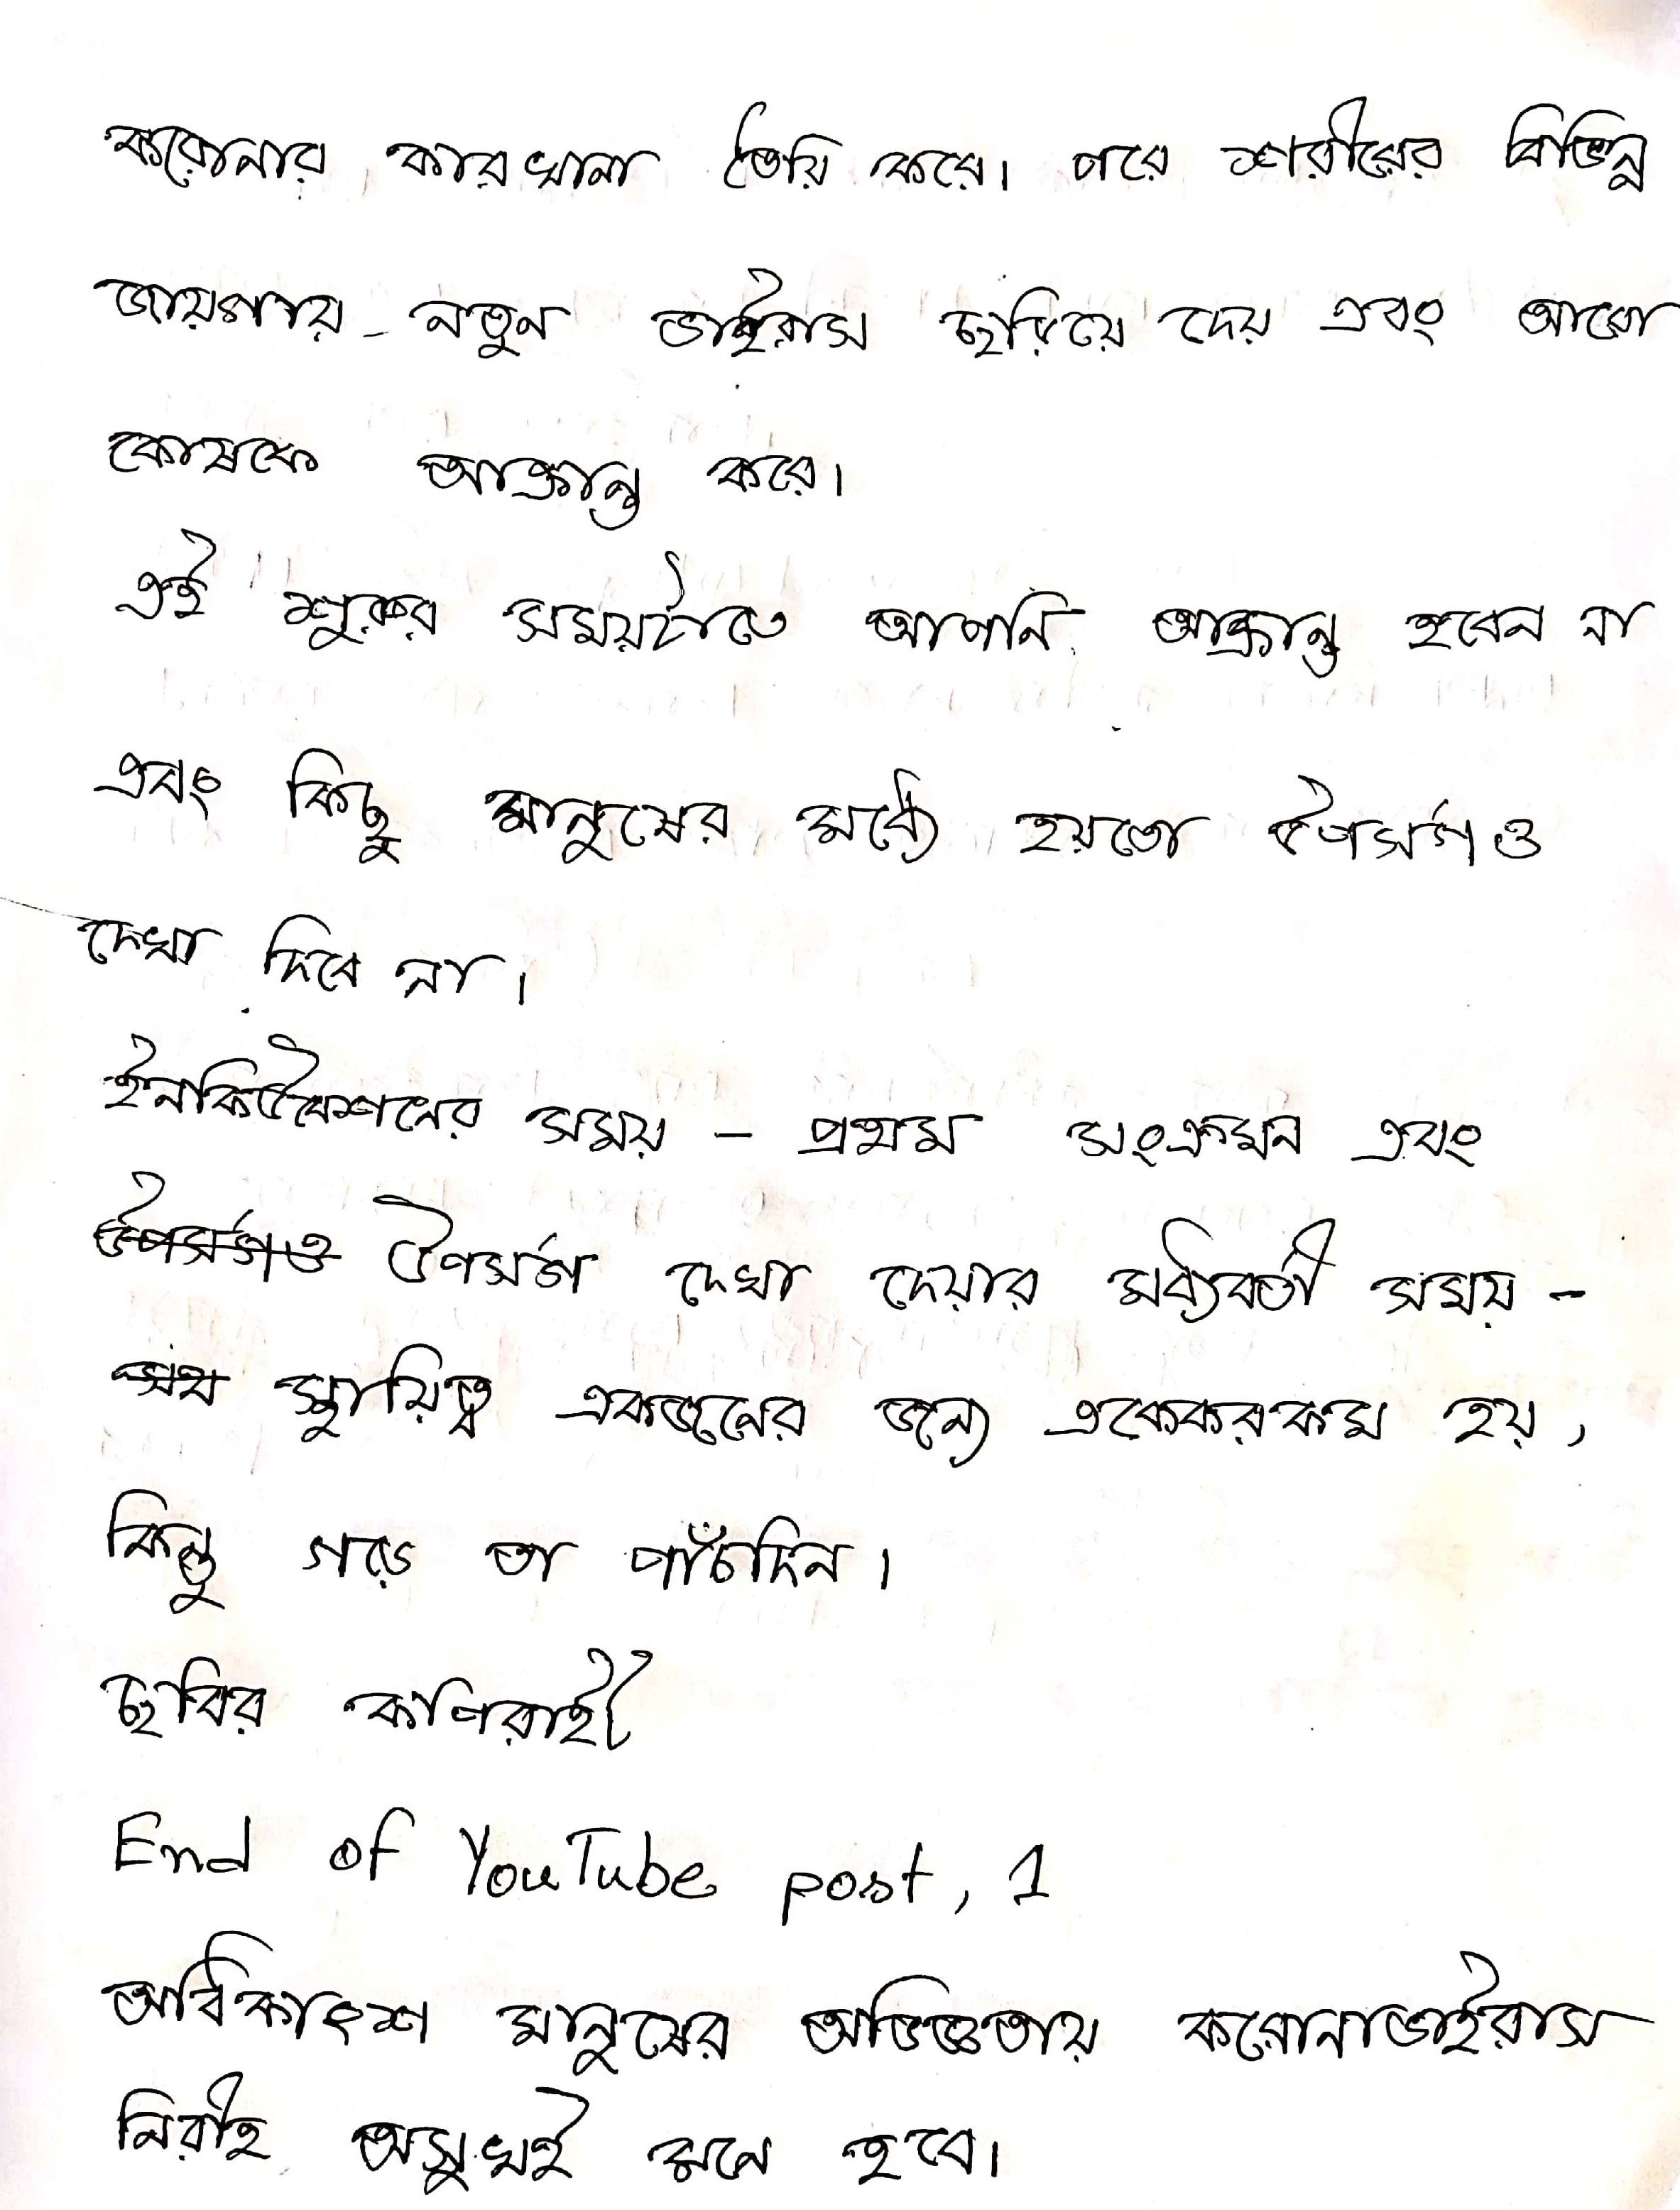 করোনার কারখানা তৈরি করে। পরে শরীরের বিভিন্ন
জায়গায় নতুন ভাইরাস ছরিয়ে দেয় এবং আরো
কোষকে আক্রান্ত করে।
এই শুরুর সময়টাতে আপনি আক্রান্ত হবেন না
এবং কিছু মানুষের মধ্যে হয়তো উপসর্গও
দেখা দিবে না।
ইনকিউবেশনের সময় - প্রথম সংক্রমন এবং
উপসর্গ দেখা দেয়ার মধ্যবর্তী সময় -
স্থায়িত্ব একজনের জন্য একেকরকম হয়,
কিন্তু গড়ে তা পাঁচদিন।
ছবির কপিরাইট
End of YouTube post, 1
অধিকাংশ মানুষের অভিজ্ঞতায় করোনাভাইরাস
নিরীহ অসুখই মনে হবে।